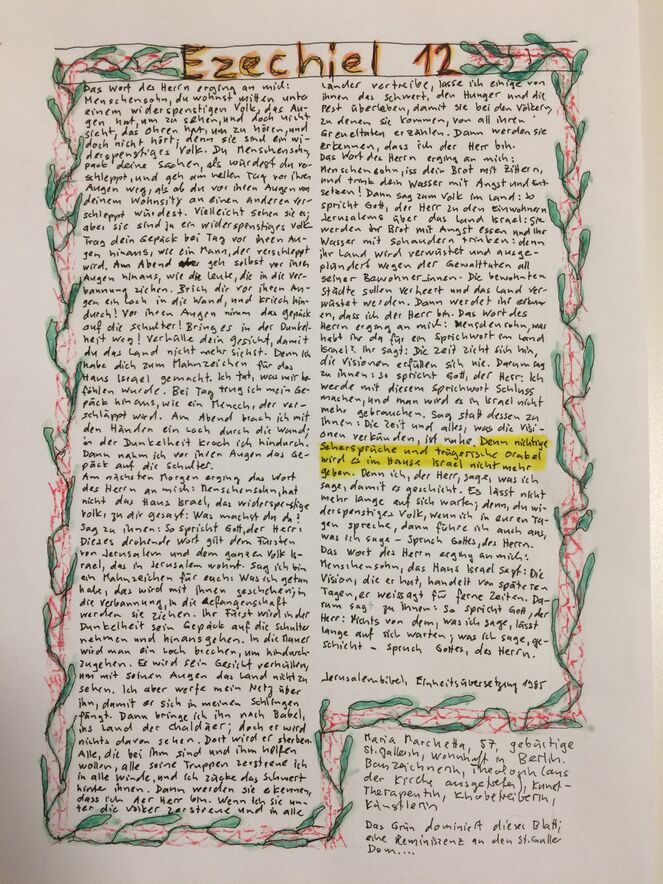 Ezechiel 12
Das Wort des Herrn erging an mich:
Menschensohn, du wohnst mitten unter
einem widerspenstigen Volk, das Au-
gen hat, um zu sehen, und doch nicht
sieht, das Ohren hat, um zu hören, und
doch nicht hört; denn sie sind ein wi-
derspenstiges Volk. Du Menschensohn,
pack deine Sachen, als würdest du ver-
schleppt, und geh am hellen Tag vor ihren
Augen weg, als ob du vor ihren Augen von
deinem Wohnsitz an einen Anderen ver-
schleppt würdest. Vielleicht sehen sie es;
aber sie sind ja ein widerspenstiges Volk
Trag dein Gepäck bei Tag vor ihren Au-
gen hinaus, wie ein Mann, der verschleppt
wird. Am Abend geh selbst vor ihren
Augen hinaus, wie die Leute, die in die Ver-
bannung ziehen. Brich dir vor ihren Au-
gen ein Loch in die Wand, und kriech hin-
durch! Vor ihren Augen nimm das Gepäck
auf die Schulter! Bring es in der Dunkel-
heit weg! Verhülle dein Gesicht, damit
du das Land nicht mehr siehst. Denn ich
habe dich zum Mahnzeichen für das
Haus Israel gemacht. Ich tat, was mir be-
fohlen wurde. Bei Tag trug ich mein Ge-
päck hinaus, wie ein Mensch, der ver-
schläppt ward. Am Abend brach ich mit
den Händen ein Loch durch die Wand;
in der Dunkelheit kroch ich hindurch.
Dann nahm ich vor ihren Augen das Ge-
päck auf die Schulter.
Am nächsten Morgen erging das Wort
des Herrn an mich: Menschensohn, hat
nicht das Haus Israel, das widerspenstige
Volk, zu dir gesagt: Was machst du da?
Sag zu ihnen: So spricht Gott, der Herr:
Dieses drohende Wort gilt dem Fürsten
von Jerusalem und dem ganzen Volk Is-
rael, das in Jerusalem wohnt. Sag ich bin
ein Mahnzeichen für euch: Was ich getan
habe, das wird mit ihnen geschehen; in
die Verbannung, in die Gefangenschaft
werden sie ziehen. Ihr Fürst wird in der
Dunkelheit sein Gepäck auf die Schulter
nehmen und hinausgehen. In die Mauer
wird man ein Loch brechen, um hindurch-
zugehen. Er wird sein Gesicht verhüllen,
um mit seinen Augen das Land nicht zu
sehen. Ich aber werfe mein Netz über
ihn, damit er sich in meinen Schlingen
fängt. Dann bringe ich ihn nach Babel,
ins Land der Chaldäer; doch er wird
nichts davon sehen. Dort wird er sterben.
Alle, die bei ihm sind und ihm helfen
wollen, alle seine Truppen zerstreue ich
in alle Winde, und ich zücke das Schwert
hinter ihnen. Dann werden sie erkennen,
dass ich der Herr bin. Wenn ich sie un-
ter die Völker zerstreue und in alle
Länder vertreibe, lasse ich einige von
ihnen das Schwert, den Hunger und die
Pest überleben, damit sie bei den Völkern,
zu denen sie kommen, von all ihren
Greueltaten erzählen. Dann werden sie
erkennen, dass ich der Herr bin.
Das Wort des Herrn erging an mich:
Menschensohn, iss dein Brot mit Zittern,
und trink dein Wasser mit Angst und Ent-
setzen! Dann sag zum Volk im Land: So
spricht Gott, der Herr zu den Einwohnern
Jerusalems über das Land Israel: Sie
werden ihr Brot mit Angst essen und ihr
Wasser mit Schaudern trinken: denn
ihr Land wird verwüstet und ausge-
plündert wegen der Gewalttaten all
seiner Bewohner_innen. Die bewohnten
Städte sollen verheert und das Land ver-
wüstet werden. Dann werdet ihr erken-
nen, dass ich der Herr bin. Das Wort des
Herrn erging an mich: Menschensohn, was
habt ihr da für ein Sprichwort im Land
Israel? Ihr sagt: Die Zeit zieht sich hin,
die Visionen erfüllen sich nie. Darum sag
zu ihnen: So spricht Gott, der Herr: Ich
werde mit diesem Sprichwort Schluss
machen, und man wird es in Israel nicht
mehr gebrauchen. Sag statt dessen zu
ihnen: Die Zeit und alles, was die Visi-
onen verkünden, ist nahe. Denn nichtige
Sehersprüche und trügerische Orakel
wird es im Hause Israel nicht mehr
geben. Denn ich, der Herr, sage, was ich
sage, damit es geschieht. Es lässt nicht
mehr lange auf sich warten; denn, du wi-
derspenstiges Volk, wenn ich in euren Ta-
gen spreche, dann führe ich auch aus,
was ich sage - Spruch Gottes, des Herrn.
Das Wort des Herrn erging an mich:
Menschensohn, das Haus Israel sagt: Die
Vision, die er hat, handelt von späteren
Tagen, er weissagt für ferne Zeiten. Da-
rum sag zu ihnen: So spricht Gott, der
Herr: Nichts von dem, was ich sage, lässt
lange auf sich warten; was ich sage, ge-
schieht - Spruch Gottes, des Herrn.
Jerusalembibel, Einheitsübersetzung 1985
Maria Marchetta, 57, gebürtige
St. Gallerin, wohnhaft in Berlin.
Bauzeichnerin, Theologin (aus
der Kirche ausgetreten), Kunst-
Therapeutin,
Künstlerin
Das Grün dominiert dieses Blatt;
eine Reminiszenz an den St. Galler
Dom....